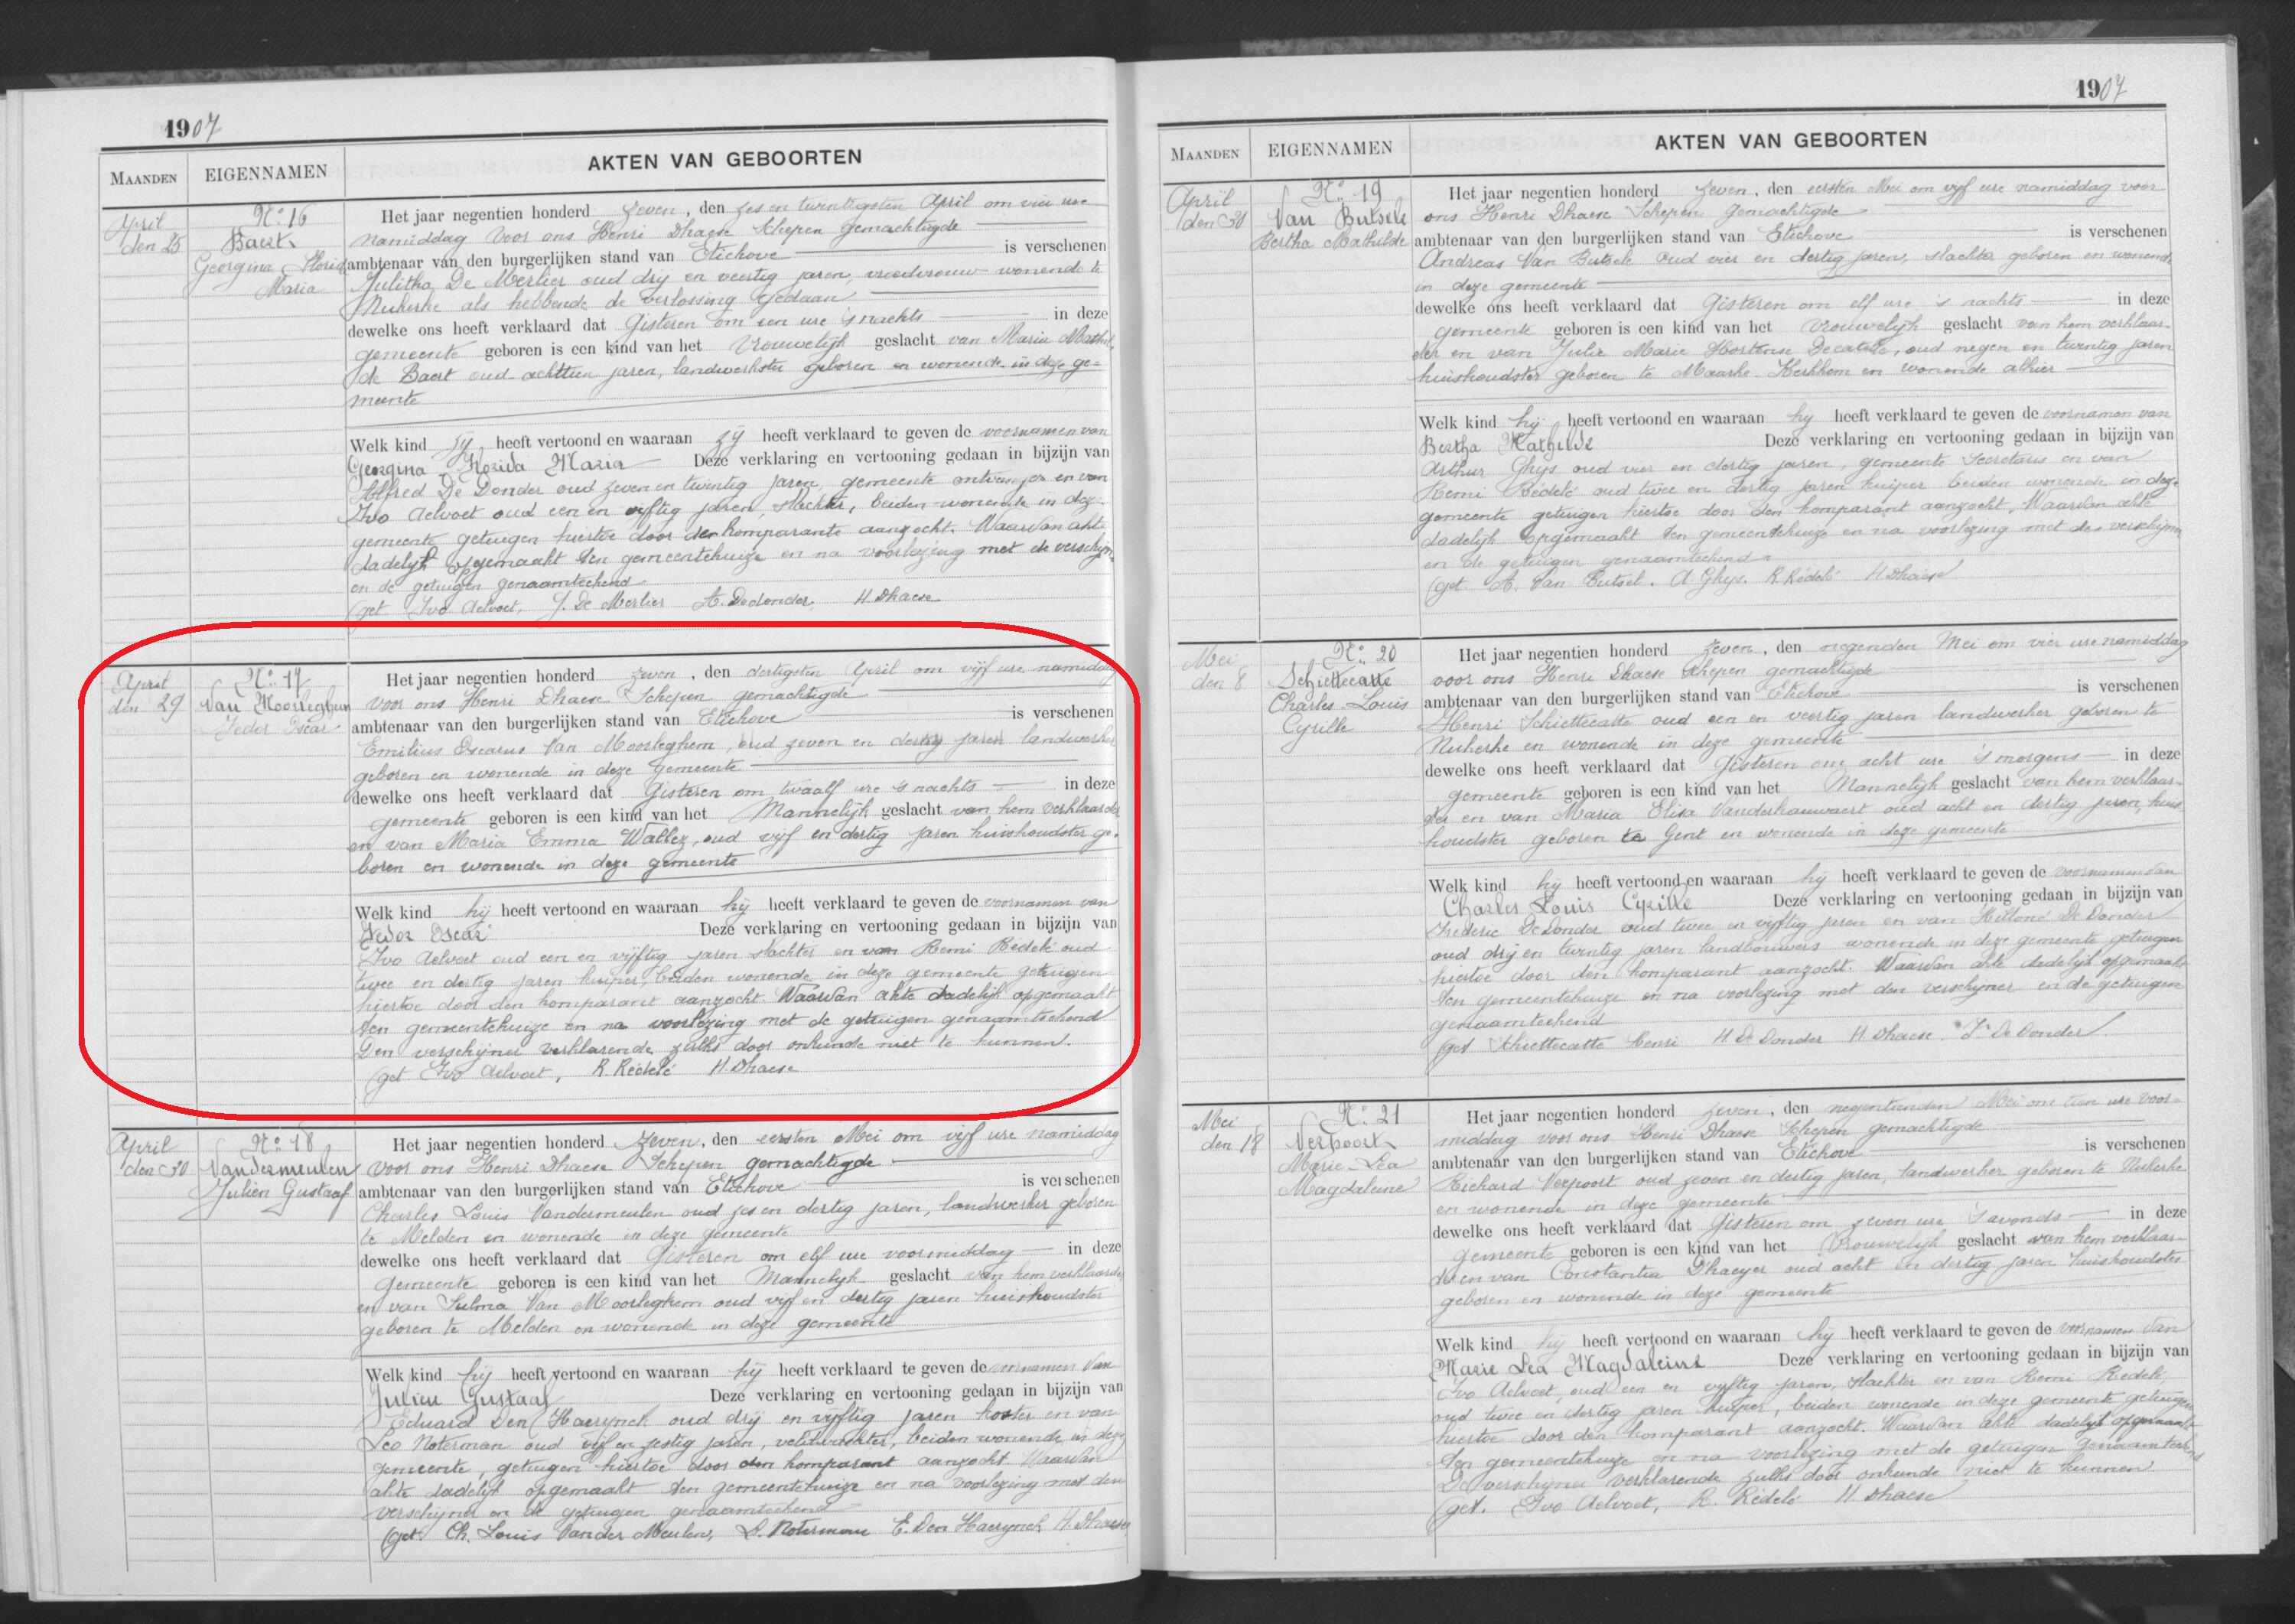 1907
MAANDEN EIGENNAMEN AKTEN VAN GEBOORTEN
April den 25
No 16
Baert
Georgina Florida
Maria
Het jaar negentien honderd zeven, den zes en twintigsten April om vier ure
namiddag voor ons Henri Dhaese Schepen gemachtigde
ambtenaar van den burgerlijken stand van Etichove is verschenen
Julitha De Merlier oud drij en veertig jaren, vroedvrouw wonende te
Nukerke als hebbende de verlossing gedaan
dewelke ons heeft verklaard dat Gisteren om een ure 's nachts in deze
gemeente geboren is een kind van het Vrouwelijk geslacht van Maria Mathil
de Baert oud achttien jaren, landwerkster geboren en wonende in deze ge=
meente
Welk kind zij heeft vertoond en waaraan zij heeft verklaard te geven de voornamen van
Georgina Florida Maria Deze verklaring en vertooning gedaan in bijzijn van
Alfred De Donder oud zeven en twintig jaren, gemeente ontvanger en van
Ivo Aelvoet oud een en vijftig jaren, slachter, beiden wonende in deze
gemeente getuigen hiertoe door den komparante aanzocht. Waarvan akte
dadelijk opgemaakt ten gemeentehuize en na voorlezing met de verschijn.
en de getuigen genaamteekend
(get Ivo Aelvoet, J. De Merlier A. Dedonder, H. Dhaese
April
den 29
No 17
Van Moorleghem
Isedor Oscar
Het jaar negentien honderd zeven, den dertigsten April om vijf ure namiddag
voor ons Henri Dhaese Schepen gemachtigde
ambtenaar van den burgerlijken stand van Etichove is verschenen
Emilius Oscarus Van Moorleghem, oud zeven en dertig jaren landwerker
geboren en wonende in deze gemeente
dewelke ons heeft verklaard dat Gisteren om twaalf ure 's nachts in deze
gemeente geboren is een kind van het Mannelijk geslacht van hem verklaarder
en van Maria Emma Wallez, oud vijf en dertig jaren huishoudster ge-
boren en wonende in deze gemeente
Welk kind hij heeft vertoond en waaraan hij heeft verklaard te geven de voornamen van
Oscar Deze verklaring en vertooning gedaan in bijzijn van
Ivo Aelvoet oud een en vijftig jaren slachter en van Remi Rédelé oud
twee en dertig jaren kuiper, beiden wonende in deze gemeente getuigen
hiertoe door den komparant aanzocht. Waarvan akte dadelijk opgemaakt
ten gemeentehuize en na voorlezing met de getuigen genaamteekend
Den verschijner verklarende zulks door onkunde niet te kunnen.
(get Ivo Aelvoet, R. Rédelé H. Dhaese
April
den 30
No 18
Vandermeulen
Julien Gustaaf
Het jaar negentien honderd zeven, den eersten Mei om vijf ure namiddag
voor ons Henri Dhaese Schepen gemachtigde
ambtenaar van den burgerlijken stand van Etichove is verschenen
Charles Louis Vandermeulen oud zes en dertig jaren, landwerker geboren
te Melden en wonende in deze gemeente
dewelke ons heeft verklaard dat Gisteren om elf ure voormiddag in deze
gemeente geboren is een kind van het Mannelijk geslacht van hem verklaarder
en van Sulma Van Moorleghem oud vijf en dertig jaren huishoudster
geboren te Melden en wonende in deze gemeente
Welk kind hij heeft vertoond en waaraan hij heeft verklaard te geven de voornamen van
Julien Gustaaf Deze verklaring en vertooning gedaan in bijzijn van
Eduard Den Haerynck oud drij en vijftig jaren koster en van
Leo Noterman oud vijf en zestig jaren, veldwachter, beiden wonende in deze
gemeente, getuigen hiertoe door den komparant aanzocht. Waarvan
akte dadelijk opgemaakt ten gemeentehuize en na voorlezing met den
verschijner en de getuigen genaamteekend
(get. Ch. Louis Vander Meulen, L. Noterman E. Den Haerynck H. Dhaese
1907
MAANDEN EIGENNAMEN AKTEN VAN GEBOORTEN
April
den 30
No 19
Van Butsele
Bertha Mathilde
Het jaar negentien honderd zeven, den eersten Mei om vijf ure namiddag voor
ons Henri Dhaese Schepen gemachtigde
ambtenaar van den burgerlijken stand van Etichove is verschenen
Andreas Van Butsele oud vier en dertig jaren, slachter geboren en wonende
in deze gemeente
dewelke ons heeft verklaard dat Gisteren om elf ure 's nachts in deze
gemeente geboren is een kind van het Vrouwelijk geslacht van hem verklaar-
der en van Julie Marie Hortense Decatelle, oud negen en twintig jaren
huishoudster geboren te Maarke Kerkhem en wonende alhier
Welk kind hij heeft vertoond en waaraan hij heeft verklaard te geven de voornamen van
Bertha Mathilde Deze verklaring en vertooning gedaan in bijzijn van
Arthur Ghys oud vier en dertig jaren, gemeente Secretaris en van
Remi Rédelé oud twee en dertig jaren kuiper beiden wonende in deze
gemeente getuigen hiertoe door den komparant aanzocht, Waarvan akte
dadelijk opgemaakt ten gemeentehuize en na voorlezing met den verschijner
en de getuigen genaamteekend
(get. A. Van Butsel. A. Ghys. R. Rédelé H. Dhaese
Mei
den 8
No 20
Schiettecatte
Charles Louis
Cyrille
Het jaar negentien honderd zeven, den negenden Mei om vier ure namiddag
voor ons Henri Dhaese Schepen gemachtigde
ambtenaar van den burgerlijken stand van Etichove is verschenen
Henri Schiettecatte oud een en veertig jaren landwerker geboren te
Nukerke en wonende in deze gemeente
dewelke ons heeft verklaard dat Gisteren om acht ure 's morgens in deze
gemeente geboren is een kind van het Mannelijk geslacht van hem verklaar-
der en van Maria Elisa Vanderhauwaert oud acht en dertig jaren, huis
houdster geboren te Gent en wonende in deze gemeente
Welk kind hij heeft vertoond en waaraan hij heeft verklaard te geven de voornamen van
Charles Louis Cyrille Deze verklaring en vertooning gedaan in bijzijn van
Frederic DeDonder oud twee en vijftig jaren en van De Donder
oud drij en twintig jaren landbouwers wonende in deze gemeente getuigen
hiertoe door den komparant aanzocht. Waarvan akte dadelijk opgemaakt
ten gemeentehuize en na voorlezing met den verschijner en de getuigen
genaamteekend
(get Schiettecatte Henri H De Donder H Dhaese. F De Donder
Mei
den 18
No 21
Verpoort
Marie Lea
Magdaleine
Het jaar negentien honderd zeven, den negentienden Mei om tien ure voor=
middag voor ons Henri Dhaese Schepen gemachtigde
ambtenaar van den burgerlijken stand van Etichove is verschenen
Richard Verpoort oud zeven en dertig jaren, landwerker geboren te Nukerke
en wonende in deze gemeente
dewelke ons heeft verklaard dat Gisteren om zeven ure 's avonds in deze
gemeente geboren is een kind van het Vrouwelijk geslacht van hem verklaar-
der en van Constantia D'haeyer oud acht en dertig jaren huishoudster
geboren en wonende in deze gemeente
Welk kind hij heeft vertoond en waaraan hij heeft verklaard te geven de voornamen van
Marie Lea Magdaleine Deze verklaring en vertooning gedaan in bijzijn van
Ivo Aelvoet, oud een en vijftig jaren, slachter en van Remi Rédelé,
oud twee en dertig jaren kuiper, beiden wonende in deze gemeente getuigen
hiertoe door den komparant aanzocht. Waarvan akte dadelijk opgemaakt
ten gemeentehuize en na voorlezing met de getuigen genaamteekend
De verschijner verklarende zulks door onkunde niet te kunnen
(get. Ivo Aelvoet, R. Rédelé H. Dhaese